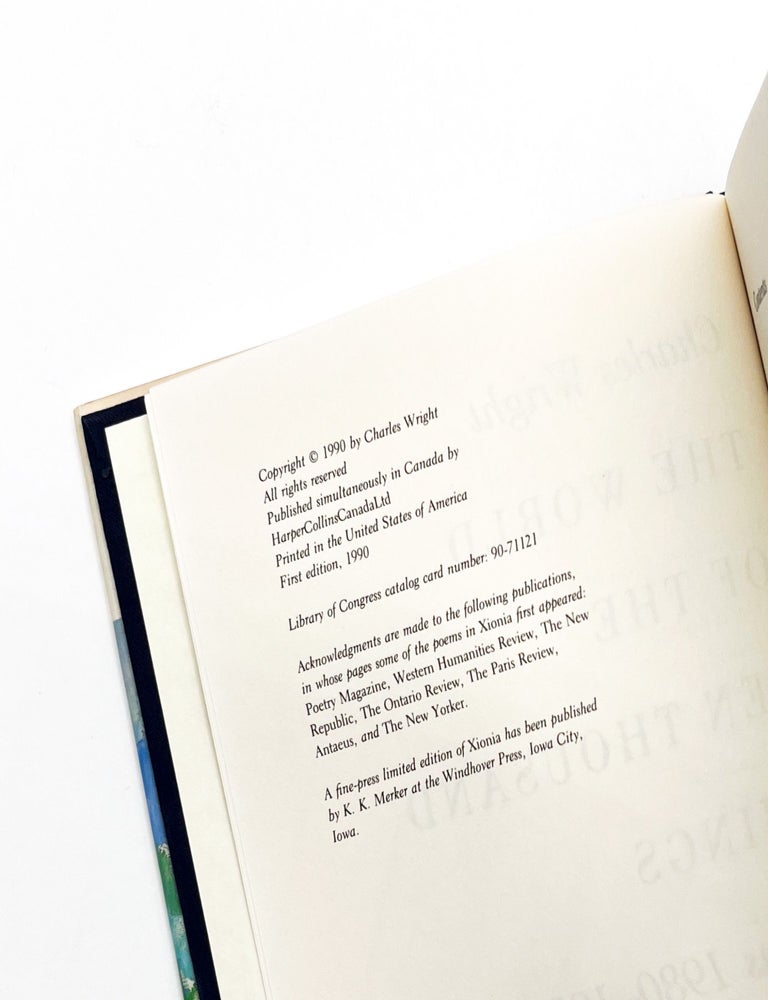 Copyright © 1990 by Charles Wright
All rights reserved
Published simultaneously in Canada by
HarperCollinsCanadaLtd
Printed in the United States of America
First edition, 1990
Library of Congress catalog card number: 90-71121
Acknowledgments are made to the following publications,
in whose pages some of the poems in Xionia first appeared:
Poetry Magazine, Western Humanities Review, The New
Republic, The Ontario Review, The Paris Review,
Antaeus, and The New Yorker.
A fine-press limited edition of Xionia has been published
by K. K. Merker at the Windhover Press, Iowa City,
Iowa.
Charles Wright
THE WORLD
OF THE
THOUSAND
1980